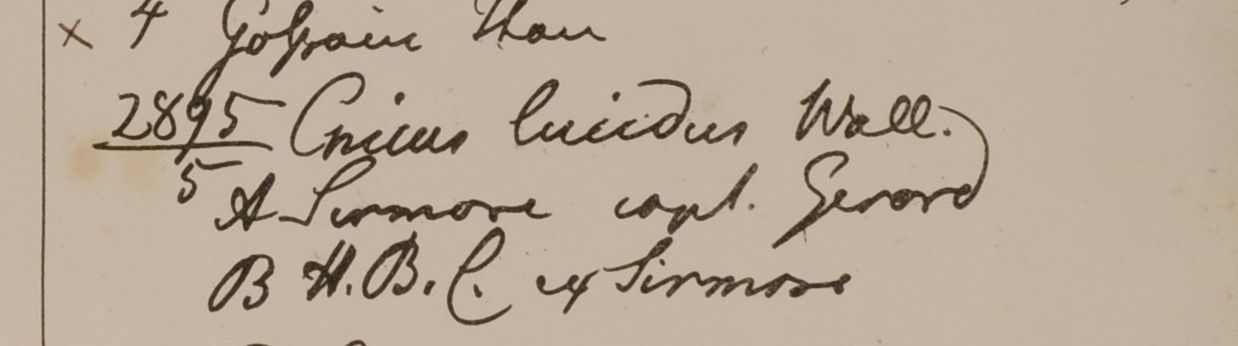 × 4 Gossain Than
2895 Cnicus lucidus Wall.
5 A Sirmore capt. Gerard
B H.B.C. ex Sirmore